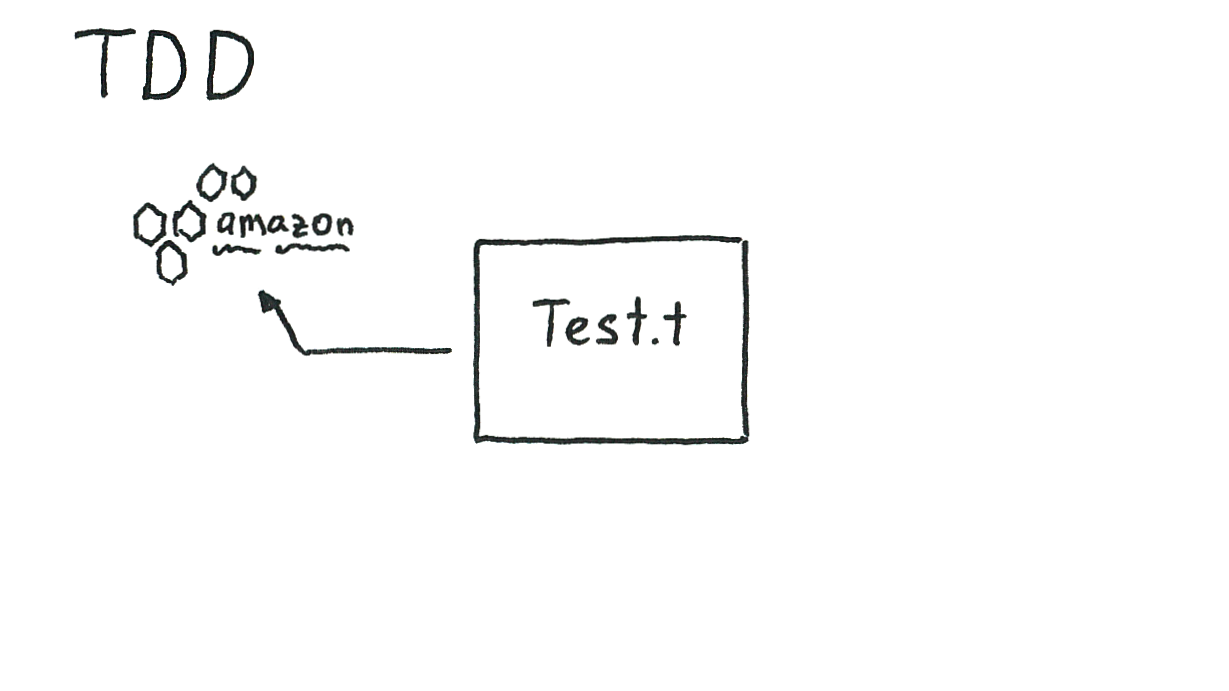 TDD
amazon
Test.t